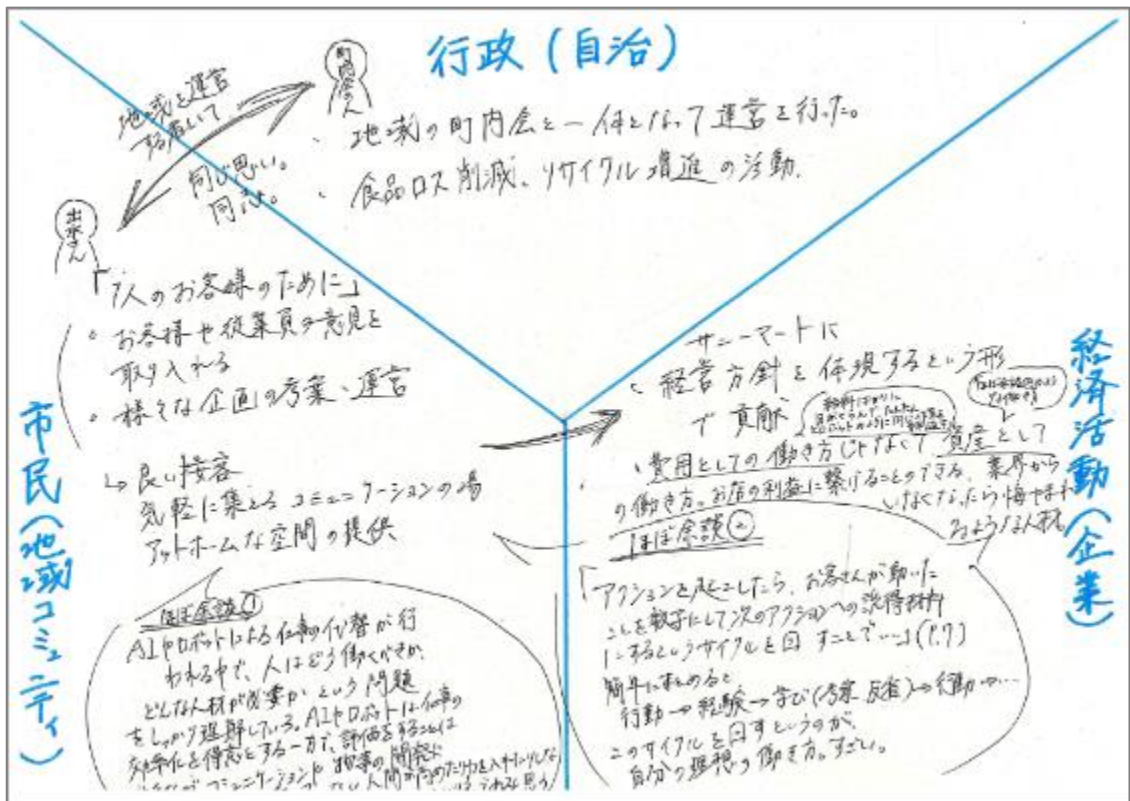 行政(自治)
町内会の人
地域を運営
する者として
同じ思い。
同志。
・地域の町内会と一体となって運営を行った。
・食品ロス削減、リサイクル増進の活動。
出来さん
「1人のお客様のために」
・お客様や従業員の意見を
取り入れる
・様々な企画の考案、運営
↳良い接客
気軽に集えるコミュニケーションの場
アットホームな空間の提供
市民(地域コミュニティ)
ほぼ余談①
AIやロボットによる仕事の代替が行
われる中で、人はどう働くべきか、
どんな人材が必要かという問題
をしっかり理解している。AIやロボットは仕事の
効率化を得意とする一方で、評価をすることは
コミュニケーションや
サニーマートに
・経営方針を体現するという形
で貢献
・費用としての働き方じゃなくて資産として
の働き方。お店の利益に繋げることのできる、業界から
いなくなったら悔やまれ
るような人材
経済活動(企業)
ほぼ余談②
「アクションを起こしたら、お客さんが動いた
ことを数字にして次のアクションへの説得材料
にするというサイクルを回すことで…」(P.7)
簡単にまとめると
行動→経験→学び(考察 反省)→行動→…
このサイクルを回すというのが、
自分の理想の働き方。すごい。